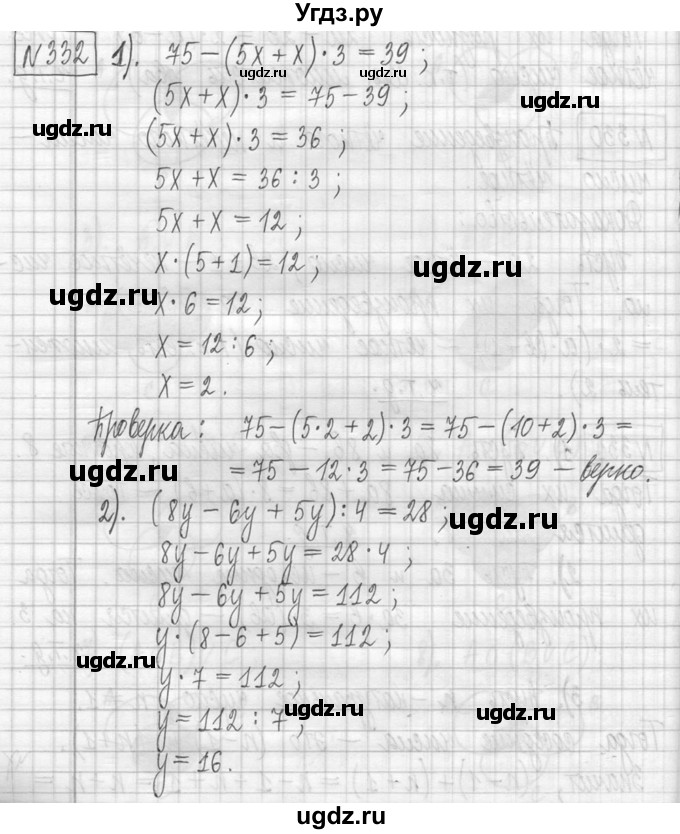 Угдз.ру
№332 1). 75-(5x+x)·3=39;
(5x+x)·3=75-39;
(5x+x)·3=36;
5x+x=36:3;
5x+x=12;
x·(5+1)=12;
x·6=12;
x=12:6;
x=2.
Проверка: 75-(5·2+2)·3=75-(10+2)·3=
=75-12·3=75-36=39 - верно.
2). (8y-6y+5y):4=28;
8y-6y+5y=28·4;
8y-6y+5y=112;
y·(8-6+5)=112;
y·7=112;
y=112:7;
y=16.
ugdz.ru
ugdz.ru
ugdz.ru
ugdz.ru
ugdz.ru
ugdz.ru
ugdz.ru
ugdz.ru
ugdz.ru
ugdz.ru
ugdz.ru
ugdz.ru